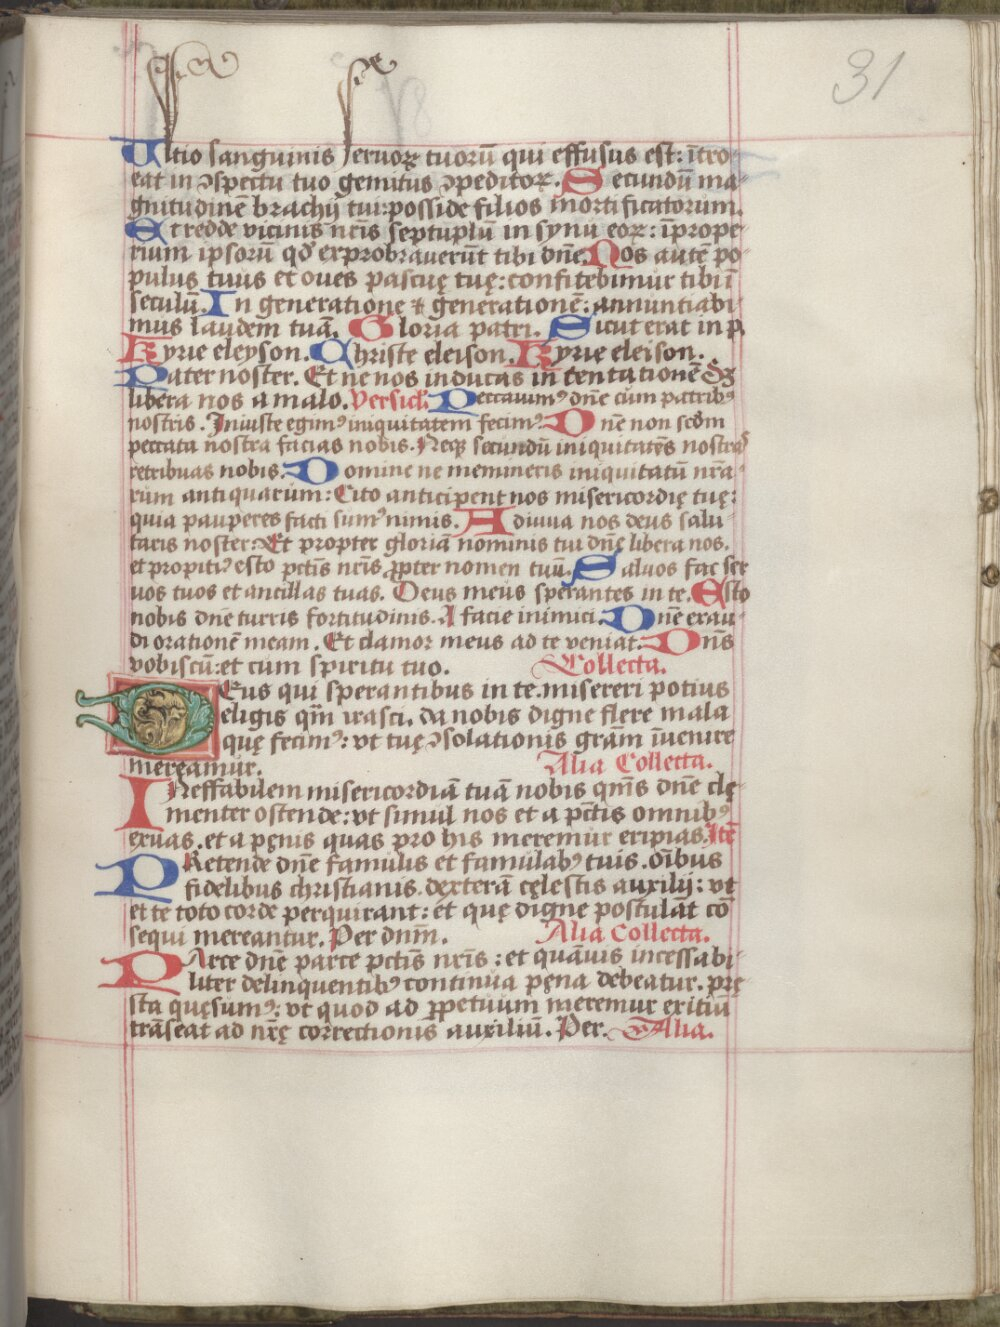 31
Ultio sanguinis seruoꝝ tuorũ qui effusus est: ĩtro
eat in ɔspectu tuo gemitus ɔpeditoꝝ. Secundũ ma-
gnitudinẽ brachij tui: posside filios mortificatorum.
Et redde vicinis nr̃is septuplũ in synu eoꝝ: ĩprope-
rium ipsorũ qd̛ exprobrauerũt tibi dñe. Nos autẽ po-
pulus tuus et oues pascuę tuę: confitebimur tibi ĩ
seculũ. In generatione ⁊ generationẽ: annuntiabi-
mus laudem tuã. Gloria patri. Sicut erat in p̛
Kyrie eleyson. Christe eleison. Kyrie eleison.
Pater noster. Et ne nos inducas in tentationẽ Sꝫ
libera nos a malo. Versicl̃i Peccauimꝰ dñe cũm patribꝰ
nostris. Iniuste egimꝰ iniquitatem fecimꝰ. Dñe non scd̃m
peccata nostra facias nobis. Neqꝫ secundũ iniquitates nostras
retribuas nobis. Domine ne memineris iniquitatũ nr̃a-
rum antiquarum: Cito anticipent nos misericordię tuę:
quia pauperes facti sumꝰ nimis. Adiuua nos deus salu-
taris noster: Et propter gloriã nominis tui dñe libera nos.
et propitiꝰ esto pctĩs nr̃is ꝓpter nomen tuũ. Saluos fac ser
uos tuos et ancillas tuas. Deus meus sperantes in te. Esto
nobis dñe turris fortitudinis. A facie inimici. Dñe exau-
di orationẽ meam. Et clamor meus ad te veniat. Dñs
vobiscũ: et cum spiritu tuo. Collecta.
DEus qui sperantibus in te misereri potius
eligis qm̃ irasci. da nobis digne flere mala
quę fecimꝰ: vt tuę ɔsolationis gram ĩuenire
mereamur. Alia Collecta.
INeffabilem misericordiã tuã nobis qm̃s dñe clę-
menter ostende: vt simul nos et a pctĩs omnibꝰ
exuas. et a pęnis quas pro his meremur eripias. Itẽ
PRetende dñe famulis et famulabꝰ tuis. oĩbus
fidelibus christianis. dexterã cęlestis auxilij: vt
et te toto corde perquirant: et quę digne postulãt cõ
sequi mereantur. Per dnm̃. Alia Collecta.
PArce dñe parce pctĩs nr̃is: et quãuis incessabi-
liter delinquentibꝰ continua pęna debeatur. prę
sta quęsumꝰ: vt quod ad ꝓpetuum meremur exitiũ
trãseat ad nr̃ę correctionis auxiliũ. Per. Alia.